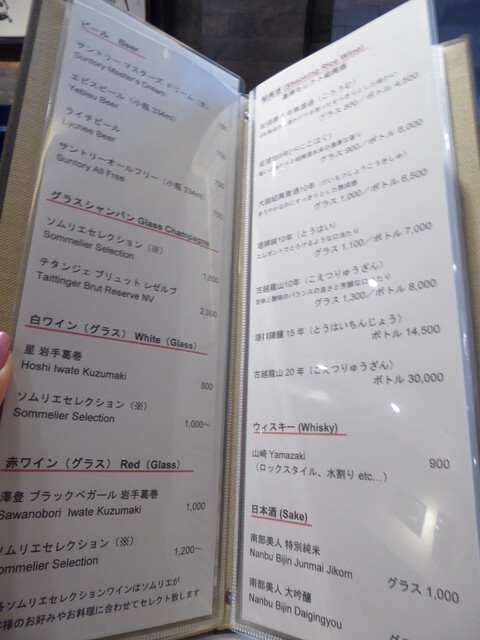 ビール Beer
サントリー マスターズ ドリーム（生）
Suntory Master's Dream
エビスビール（小瓶 334ml）
Yebisu Beer
ライチビール
Lychee Beer
サントリーオールフリー（小瓶 334ml）
Suntory All Free
700
グラスシャンパン Glass Champagne
ソムリエセレクション（※）
Sommelier Selection
1,600
テタンジェ ブリュット レゼルブ
Taittinger Brut Reserve NV
2,000
白ワイン（グラス） White（Glass）
星 岩手葛巻
Hoshi Iwate Kuzumaki
800
ソムリエセレクション（※）
Sommelier Selection
1,000～
赤ワイン（グラス） Red（Glass）
澤登 ブラックペガール 岩手葛巻
Sawanobori Iwate Kuzumaki
1,000
ソムリエセレクション（※）
Sommelier Selection
1,200～
各ソムリエセレクションワインはソムリエが
客様のお好みやお料理に合わせてセレクト致します
紹興酒 (Shaoxing Rice Wine)
グラス 800／ボトル 4,500
グラス 900／ボトル 6,000
グラス 1,000／ボトル 6,500
塔牌 10年（とうはい）
エレガントでとろけるような口当たり
グラス 1,100／ボトル 7,000
古越龍山10年（こえつりゅうざん）
甘味と酸味のバランスの良さと芳醇な口当たり
グラス 1,300／ボトル 8,000
塔牌陳醸 15 年（とうはいちんじょう）
ボトル 14,500
古越龍山 20 年（こえつりゅうざん）
ボトル 30,000
ウィスキー (Whisky)
山崎 Yamazaki
900
（ロックスタイル、水割り etc…）
日本酒 (Sake)
南部美人 特別純米
Nanbu Bijin Junmai Jikom
グラス 1,000
南部美人 大吟醸
Nanbu Bijin Daigingyou